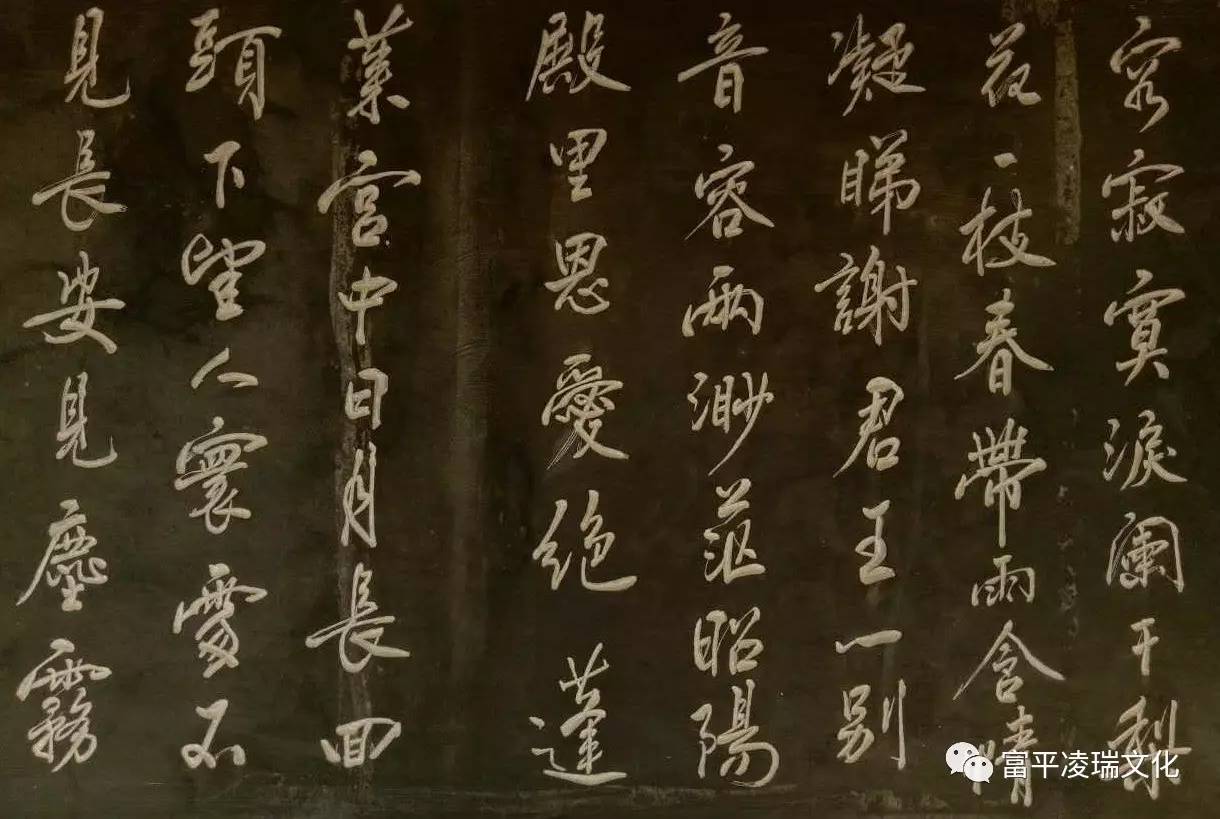 容寂寞淚瀾干梨
花一枝春帶雨含情
凝睇謝君王一別
音容兩渺茫昭陽
殿里恩愛絕蓬
萊宮中日月長回
頭下望人寰處不
見長安見塵霧
富平凌瑞文化